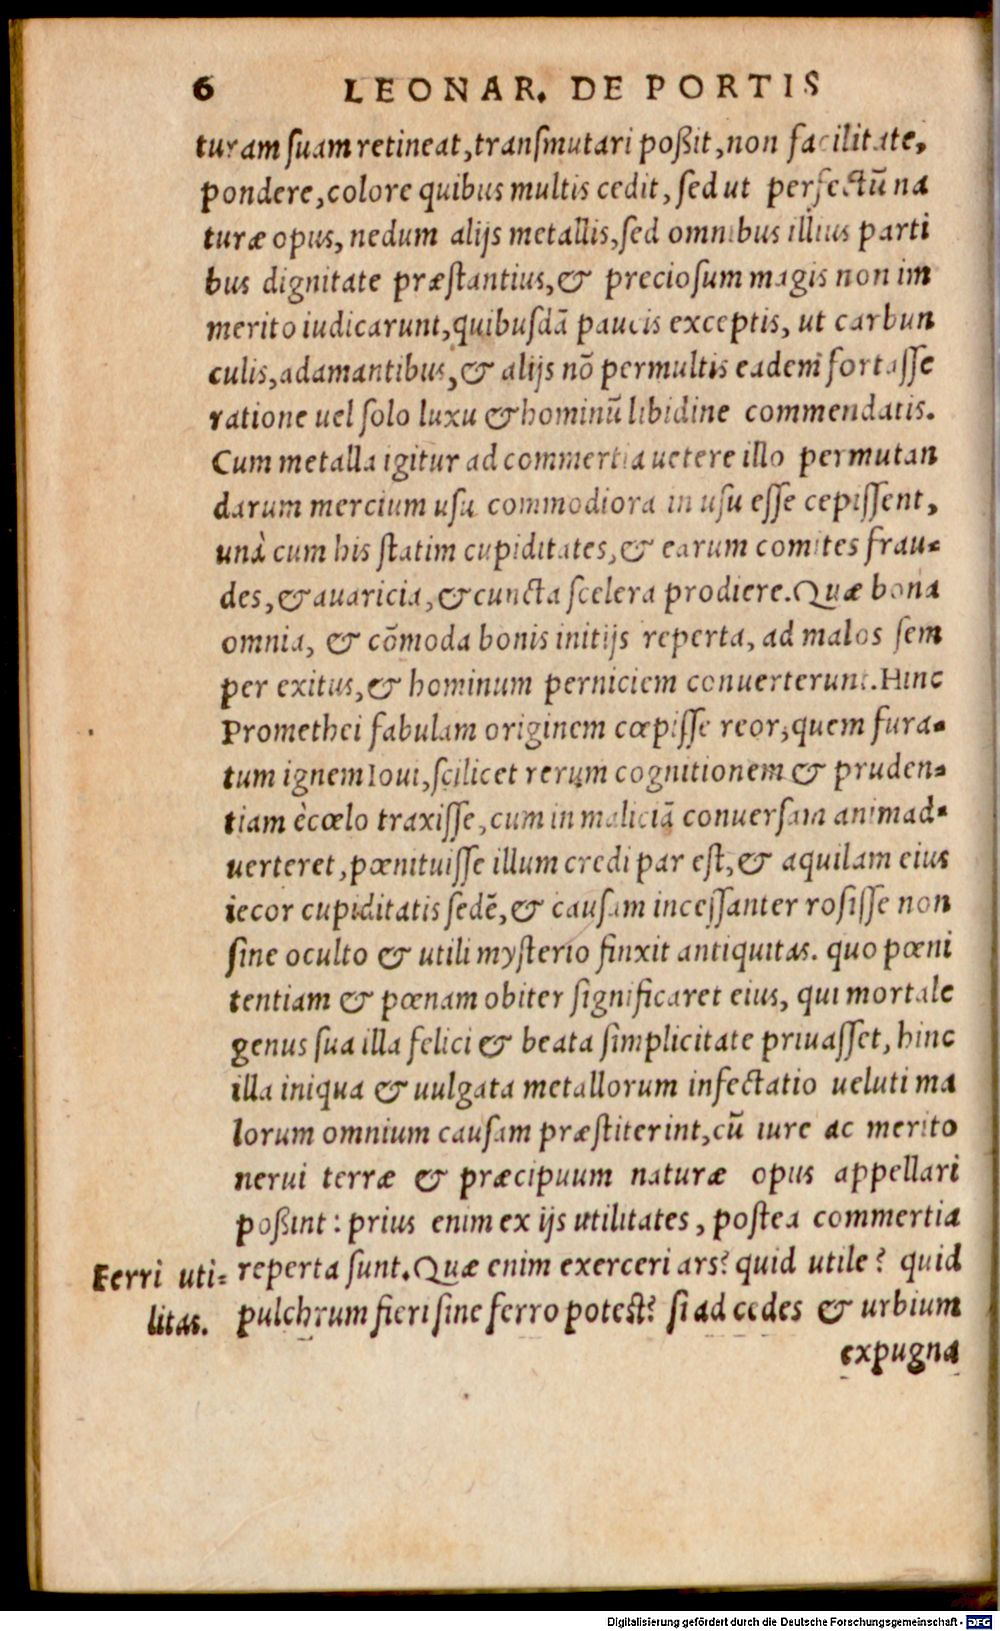 6 LEONAR. DE PORTIS
turam suam retineat, transmutari poßit, non facilitate,
pondere, colore quibus multis cedit, sed ut perfectũ na
turæ opus, nedum alijs metallis, sed omnibus illius parti
bus dignitate præstantius, & preciosum magis non im
merito iudicarunt, quibusdã paucis exceptis, ut carbun
culis, adamantibus, & alijs nõ permultis eadem fortasse
ratione uel solo luxu & hominũ libidine commendatis.
Cum metalla igitur ad commertia uetere illo permutan
darum mercium usu commodiora in usu esse cepissent,
unà cum his statim cupiditates, & earum comites frau-
des, & auaricia, & cuncta scelera prodiere. Quæ bona
omnia, & cõmoda bonis initijs reperta, ad malos sem
per exitus, & hominum perniciem conuerterunt. Hinc
Promethei fabulam originem cœpisse reor, quem fura-
tum ignem Ioui, scilicet rerum cognitionem & pruden-
tiam è cœlo traxisse, cum in maliciã conuersam animad-
uerteret, pœnituisse illum credi par est, & aquilam eius
iecor cupiditatis sedẽ, & causam incessanter rosisse non
sine oculto & utili mysterio finxit antiquitas. quo pœni
tentiam & pœnam obiter significaret eius, qui mortale
genus sua illa felici & beata simplicitate priuasset, hinc
illa iniqua & uulgata metallorum infectatio ueluti ma
lorum omnium causam præstiterint, cũ iure ac merito
nerui terræ & præcipuum naturæ opus appellari
poßint: prius enim ex ijs utilitates, postea commertia
reperta sunt. Quæ enim exerceri ars? quid utile? quid
pulchrum fieri sine ferro potest? si ad cedes & urbium
expugna
Ferri uti-
litas.
Digitalisierung gefördert durch die Deutsche Forschungsgemeinschaft - DFG